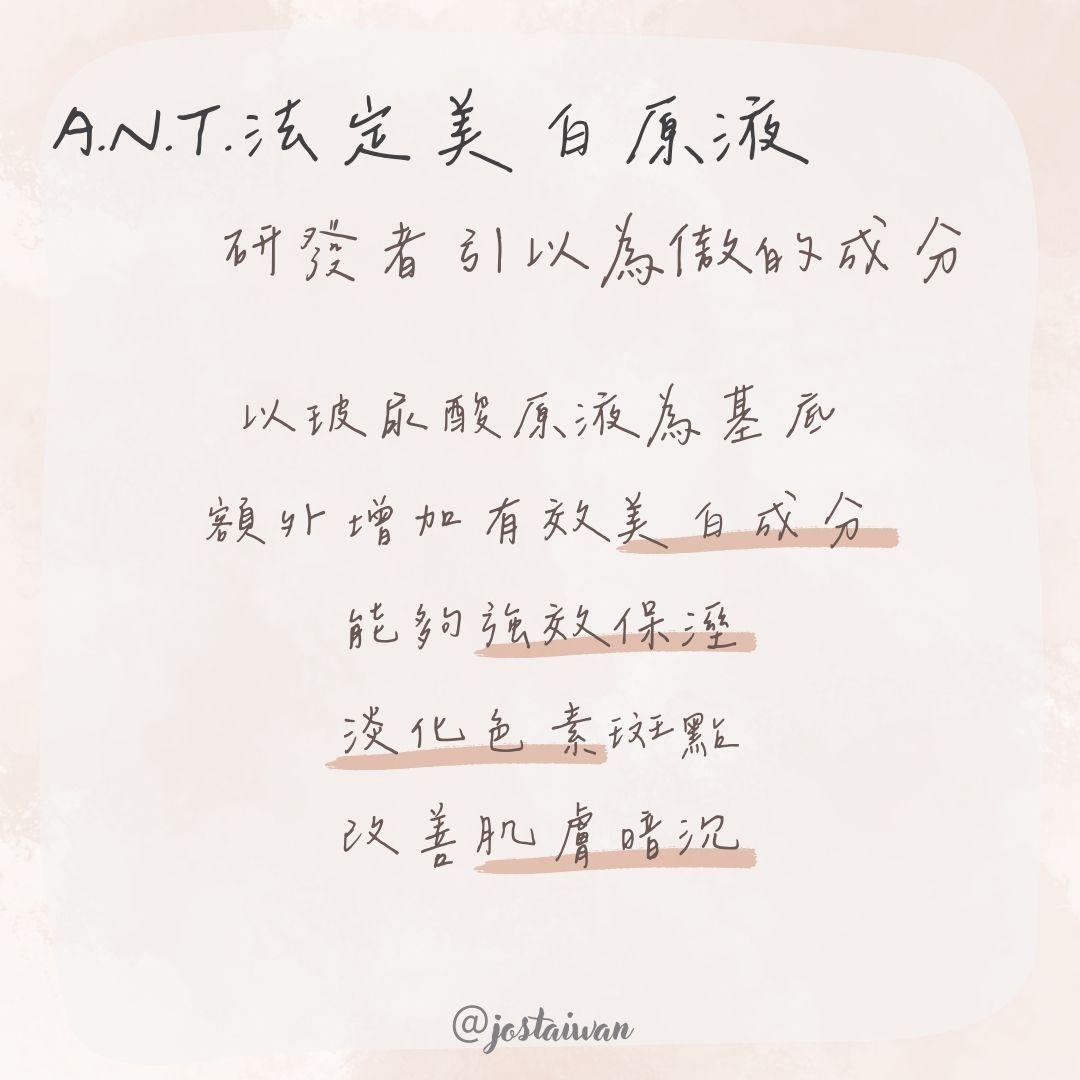 A.N.T.法定美白原液
研發者引以為傲的成分
以玻尿酸原液為基底
額外增加有效美白成分
能夠強效保溼
淡化色素斑點
改善肌膚暗沉
@jostaiwan